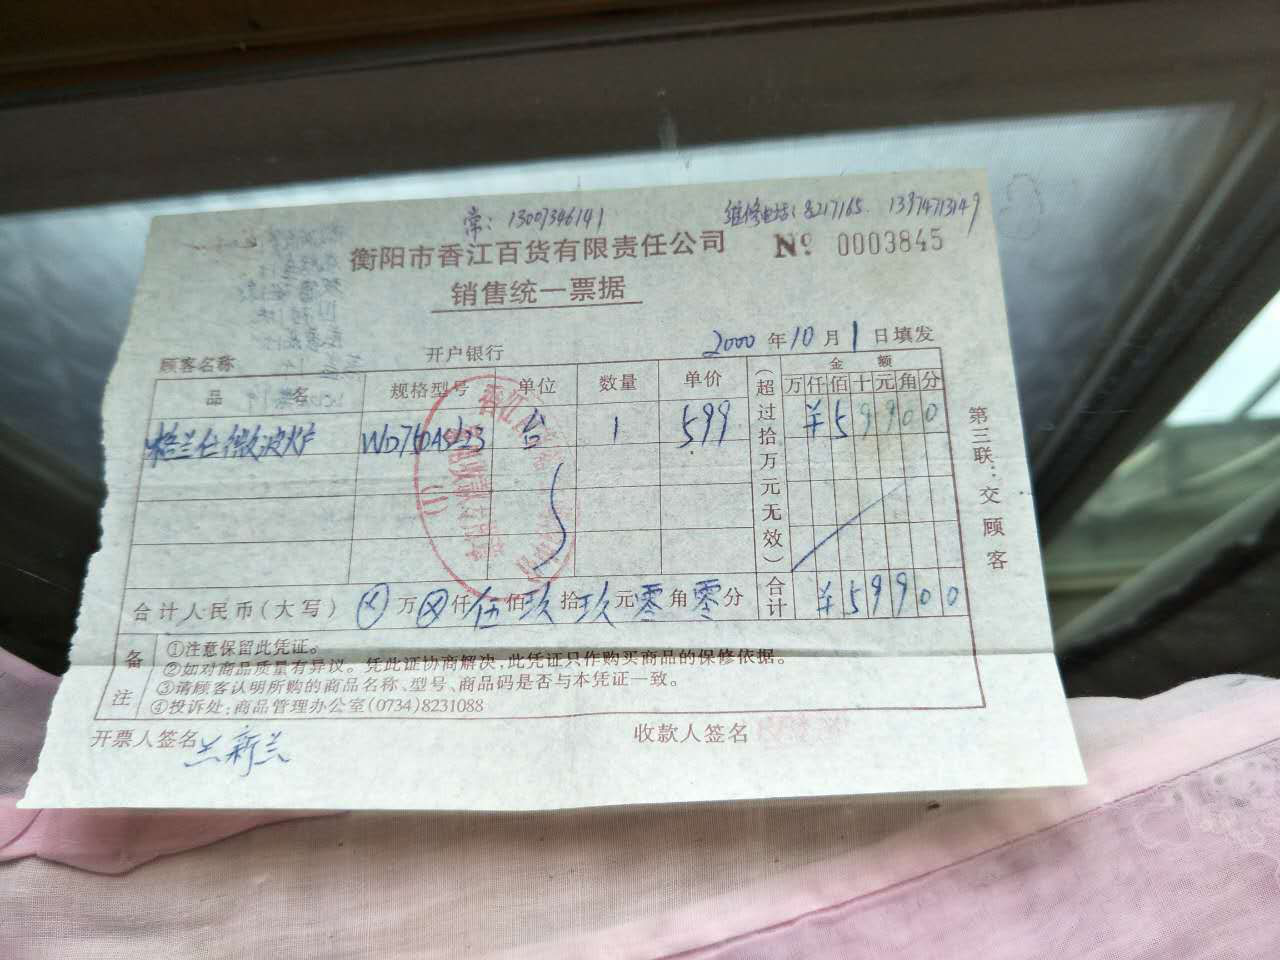 常：13007346141 维修电话：8217165. 13974713149
衡阳市香江百货有限责任公司 № 0003845
销售统一票据
顾客名称 开户银行 2000 年 10 月 1 日填发
品 名 规格型号 单位 数量 单价 （超过拾万元无效） 金 额
万 仟 佰 十 元 角 分
格兰仕微波炉 台 1 599 ¥59900
合计人民币（大写） ⊗ 万 ⊗ 仟 伍 佰 玖 拾 玖 元 零 角 零 分 合计 ¥59900
备注
①注意保留此凭证。
②如对商品质量有异议。凭此证协商解决，此凭证只作购买商品的保修依据。
③请顾客认明所购的商品名称、型号、商品码是否与本凭证一致。
④投诉处：商品管理办公室(0734)8231088
第三联：交顾客
开票人签名 收款人签名